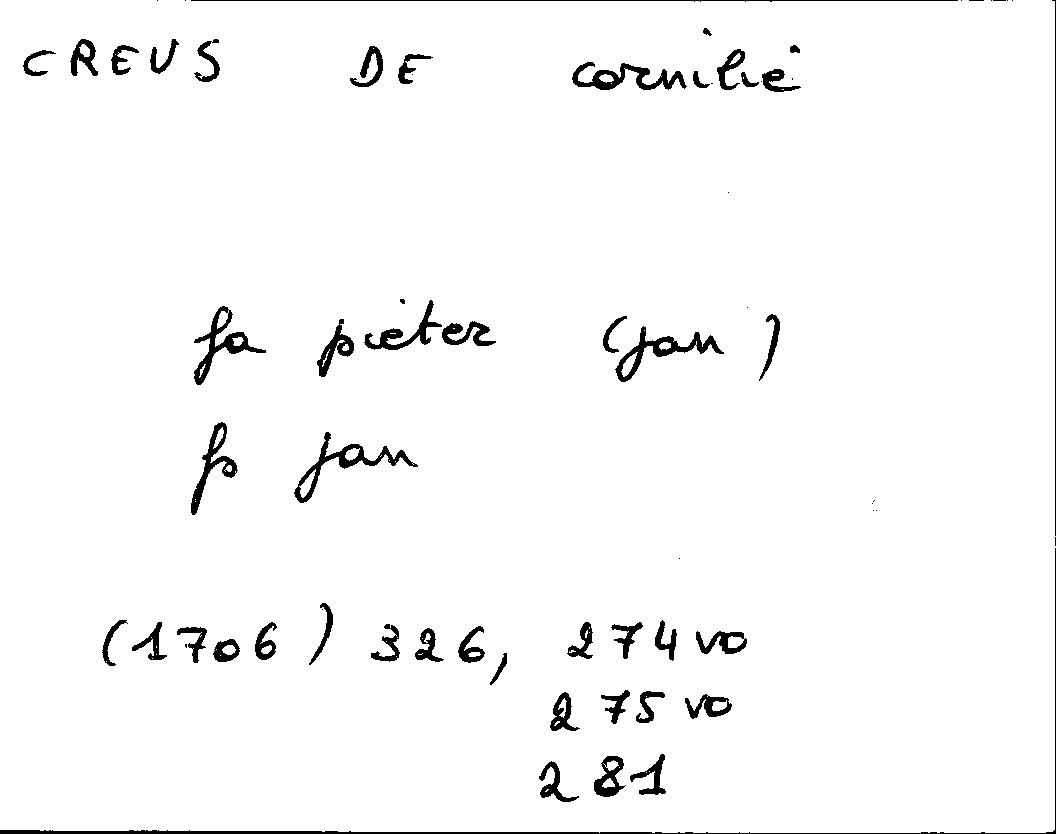 CREUS DE cornilie
fa pieter (jan)
fs jan
(1706) 326, 274 vo
275 vo
281